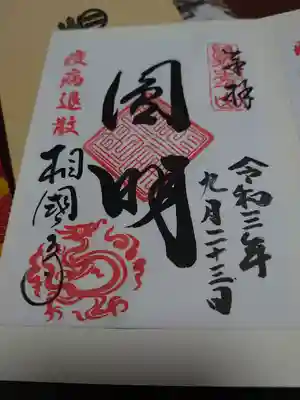 奉拝
令和三年
九月二十三日
圓明
疫病退散
相國寺